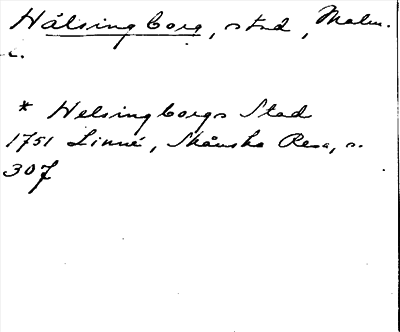 Hälsingborg, stad, Malm.
c.
* Helsingborgs Stad
1751 Linné, Skånska Resa, s.
307